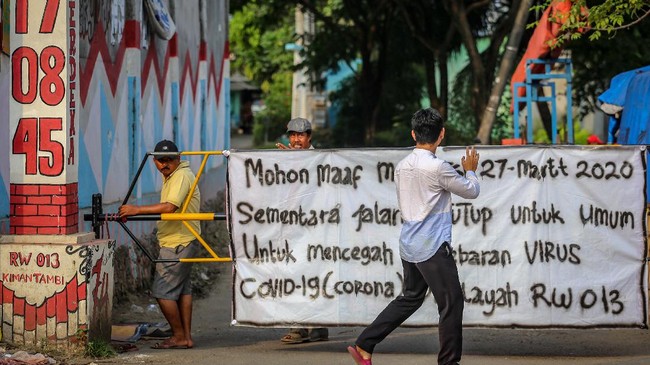 17
08
45
MERDEKA
RW 013
KIMANTAMBI
Mohon Maaf 27-Martt 2020
Sementara jalan TUTUP untuk umum
Untuk mencegah VIRUS
COVID-19 (corona) RW 013